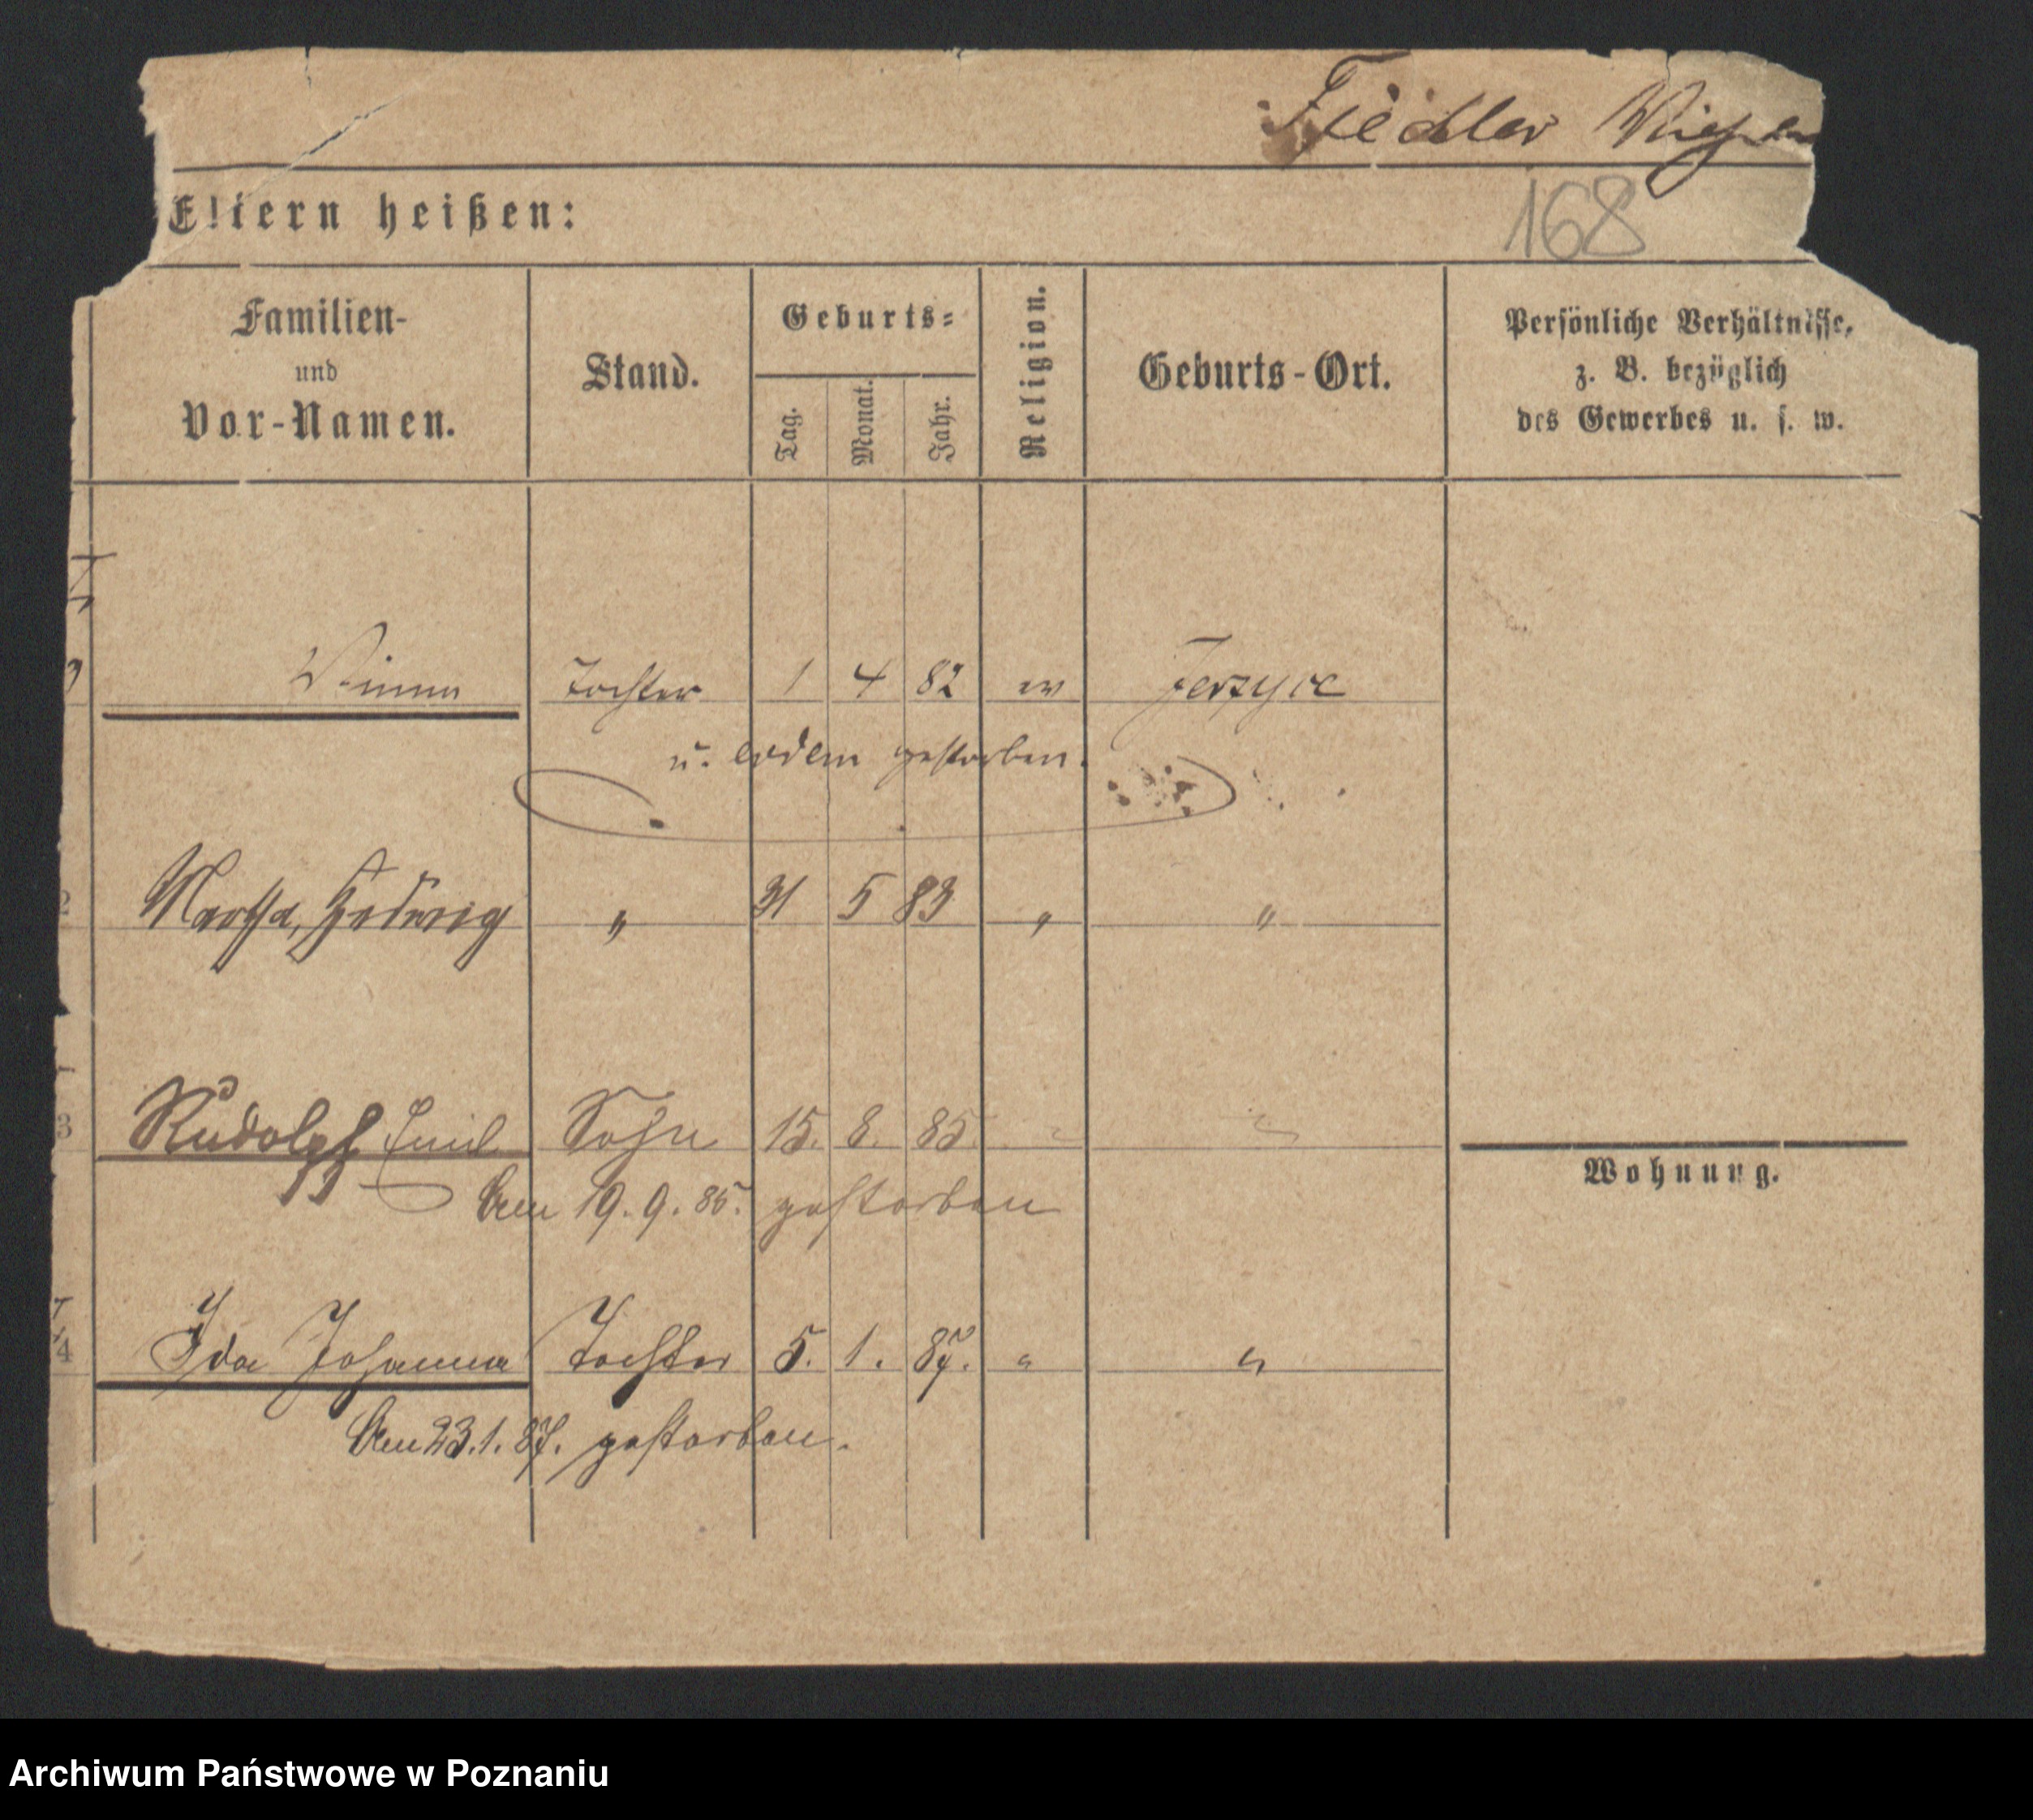 Fiedler
168
Eltern heißen:
Familien- und Vor-Namen.
Stand.
Geburts=
Tag.
Monat.
Jahr.
Religion.
Geburts-Ort.
Persönliche Verhältnisse,
z. B. bezüglich
des Gewerbes u. s. w.
Tochter 1 4 82 ev Jerzyce
u. gestorben.
2 Martha, Hedwig " 31 5 83 " "
3 Rudolph Emil Sohn 15. 8. 85. " "
Den 19. 9. 85. gestorben
4 Ida Johanna Tochter 5. 1. 87. " "
Den 23. 1. 87. gestorben.
Wohnung.
Archiwum Państwowe w Poznaniu